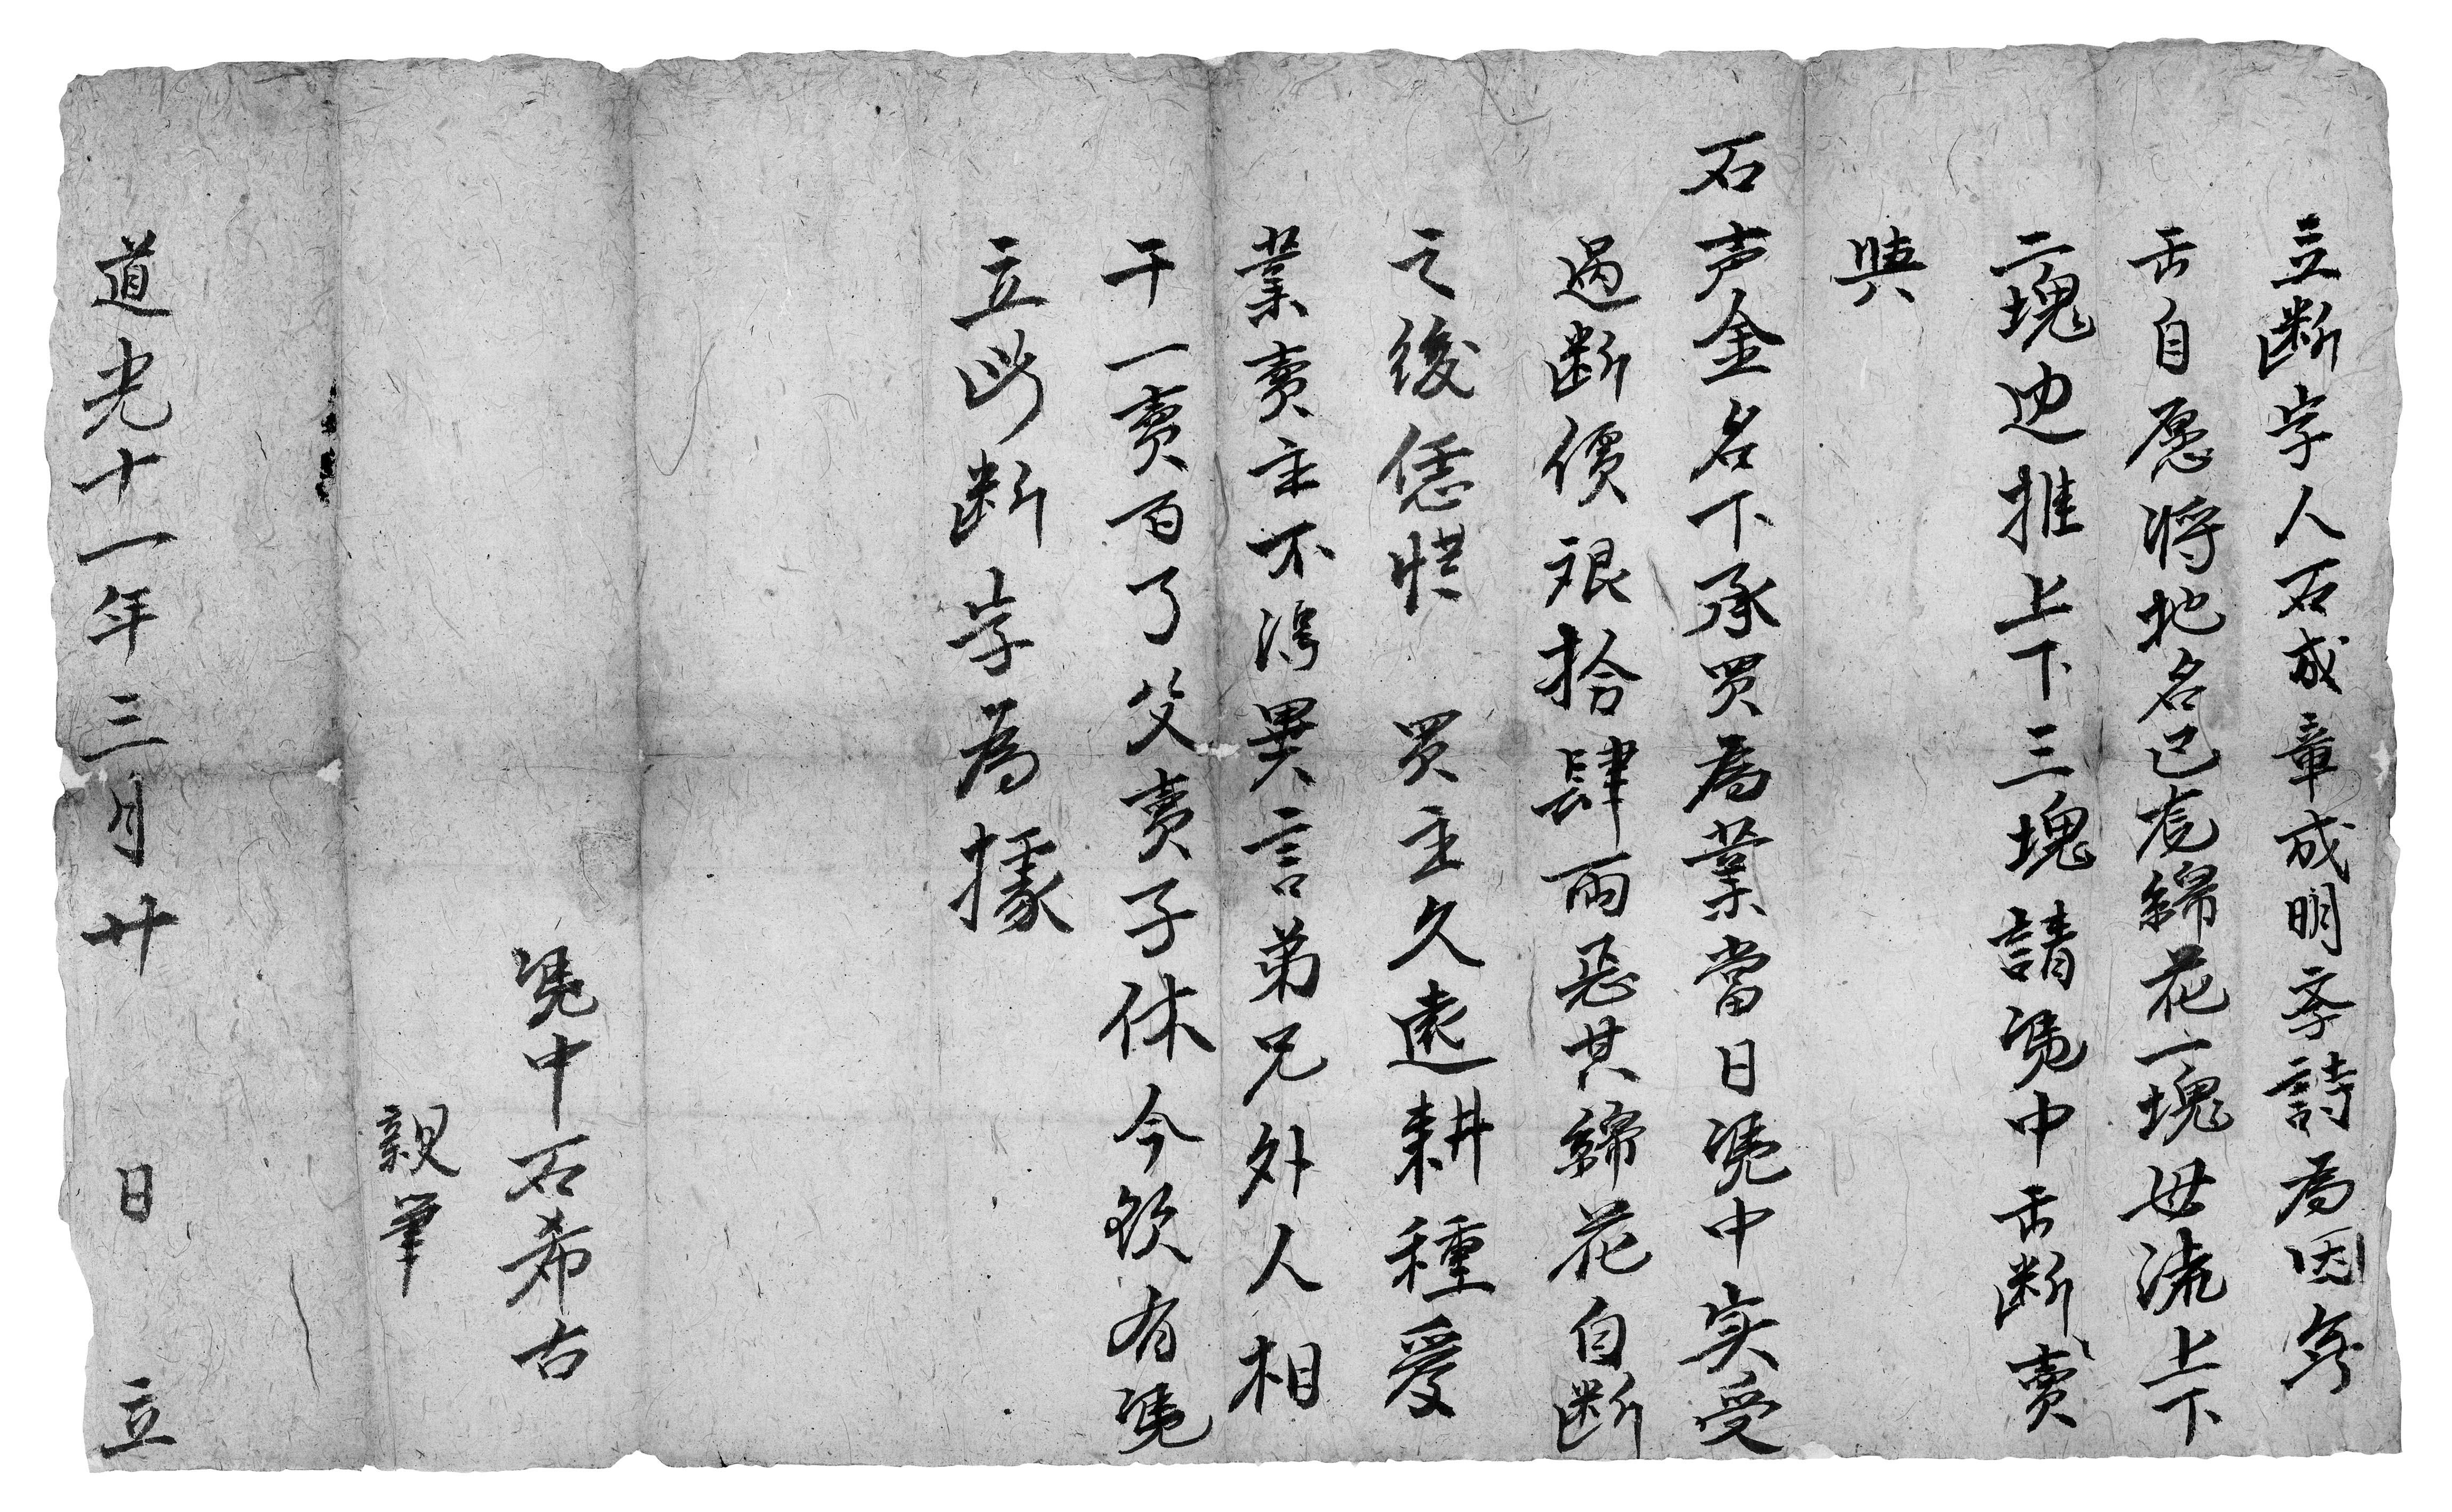 立断字人石成章成明夆詩為因無
缶自愿将地名己虎綿花一塊毋流上下
二塊边推上下三塊請凴中缶断賣
與
石声金名下承買為業當日凴中実受
過断價艰拾肆両忌其綿花自断
之後恁憑買主久遠耕種爱
業賣主不淂異言弟兄外人相
干一賣百了父賣子休今欲有凴
立此断字為據
凴中石希古
親筆
道光十一年三月廿日立